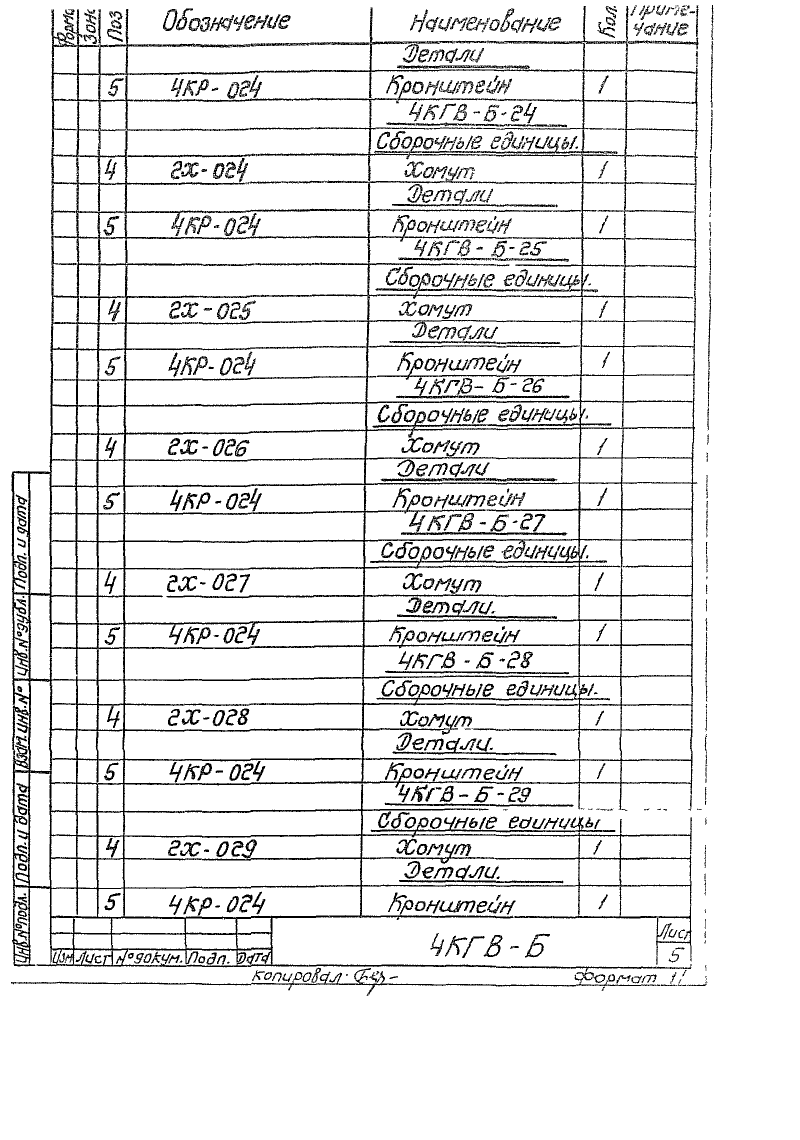 Форма Зона Поз Обозначение Наименование Кол. Приме-
чание
Детали
5 4КР-024 Кронштейн 1
4КГВ-Б-24
Сборочные единицы.
4 2Х-024 Хомут 1
Детали
5 4КР-024 Кронштейн 1
4КГВ-Б-25
Сборочные единицы.
4 2Х-025 Хомут 1
Детали
5 4КР-024 Кронштейн 1
4КГВ-Б-26
Сборочные единицы.
4 2Х-026 Хомут 1
Детали
5 4КР-024 Кронштейн 1
4КГВ-Б-27
Сборочные единицы.
4 2Х-027 Хомут 1
Детали.
5 4КР-024 Кронштейн 1
4КГВ-Б-28
Сборочные единицы.
4 2Х-028 Хомут 1
Детали.
5 4КР-024 Кронштейн 1
4КГВ-Б-29
Сборочные единицы
4 2Х-029 Хомут 1
Детали.
5 4КР-024 Кронштейн 1
Инв.№подл. Подп. и дата Взам.инв.№ Инв.№дубл. Подп. и дата
Изм Лист №докум. Подп. Дата
4КГВ-Б
Лист
5
копировал
формат 11